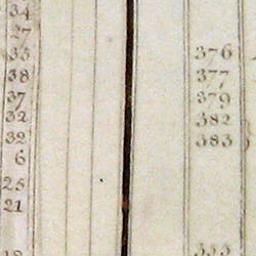 34
27
35
38 376
37 377
32 379
32 382
6 383
25
21
18 333